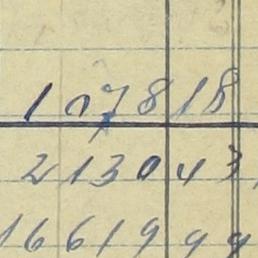 107818
213043
1661999